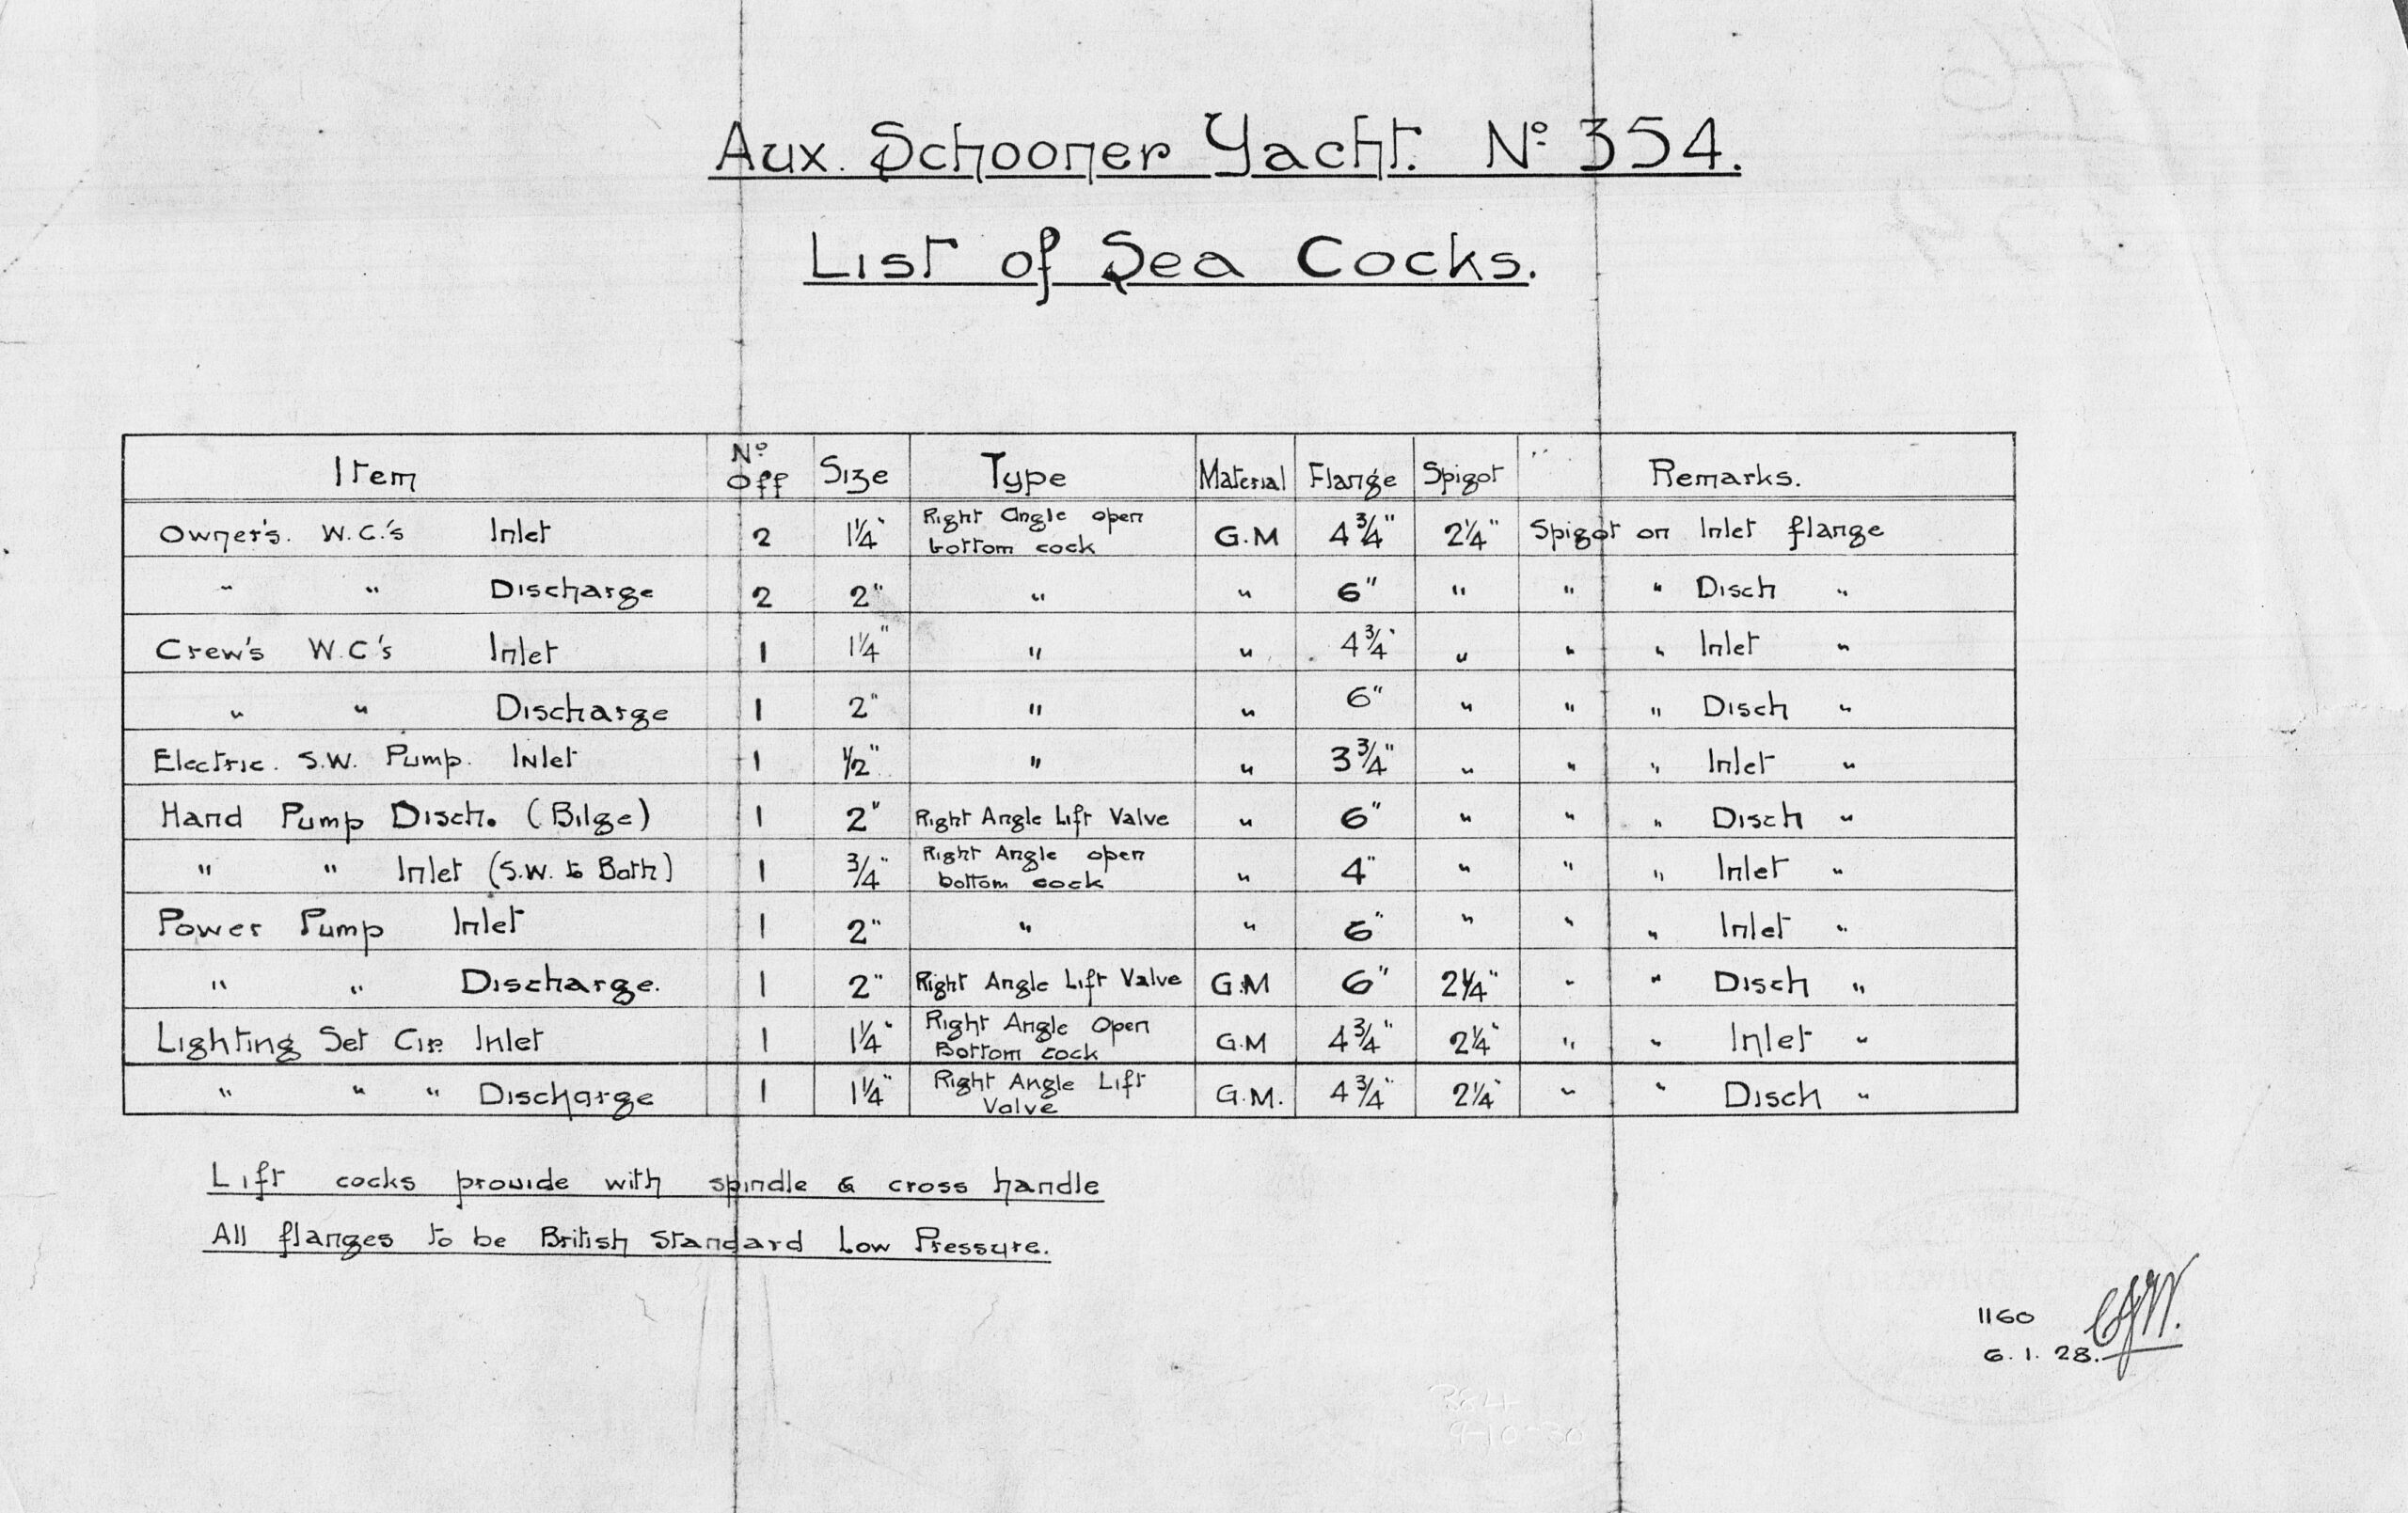 Aux. Schooner Yacht. Nº 354.
List of Sea Cocks.
Item Nº Off Size Type Material Flange Spigot Remarks.
Owner's. W.C.'s Inlet 2 1¼" Right Angle open bottom cock G.M 4¾" 2¼" Spigot on Inlet flange
" " Discharge 2 2" " " 6" " " " Disch "
Crew's W.C's Inlet 1 1¼" " " 4¾" " " " Inlet "
" " Discharge 1 2" " " 6" " " " Disch "
Electric. S.W. Pump. Inlet 1 ½" " " 3¾" " " " Inlet "
Hand Pump Disch. (Bilge) 1 2" Right Angle Lift Valve " 6" " " " Disch "
" " Inlet (S.W. to Bath) 1 ¾" Right Angle open bottom cock " 4" " " " Inlet "
Power Pump Inlet 1 2" " " 6" " " " Inlet "
" " Discharge. 1 2" Right Angle Lift Valve G.M 6" 2¼" " " Disch "
Lighting Set Cir. Inlet 1 1¼" Right Angle Open Bottom cock G.M 4¾" 2¼" " " Inlet "
" " " Discharge 1 1¼" Right Angle Lift Valve G.M. 4¾" 2¼" " " Disch "
Lift cocks provide with spindle & cross handle
All flanges to be British Standard Low Pressure.
1160
6.1.28.